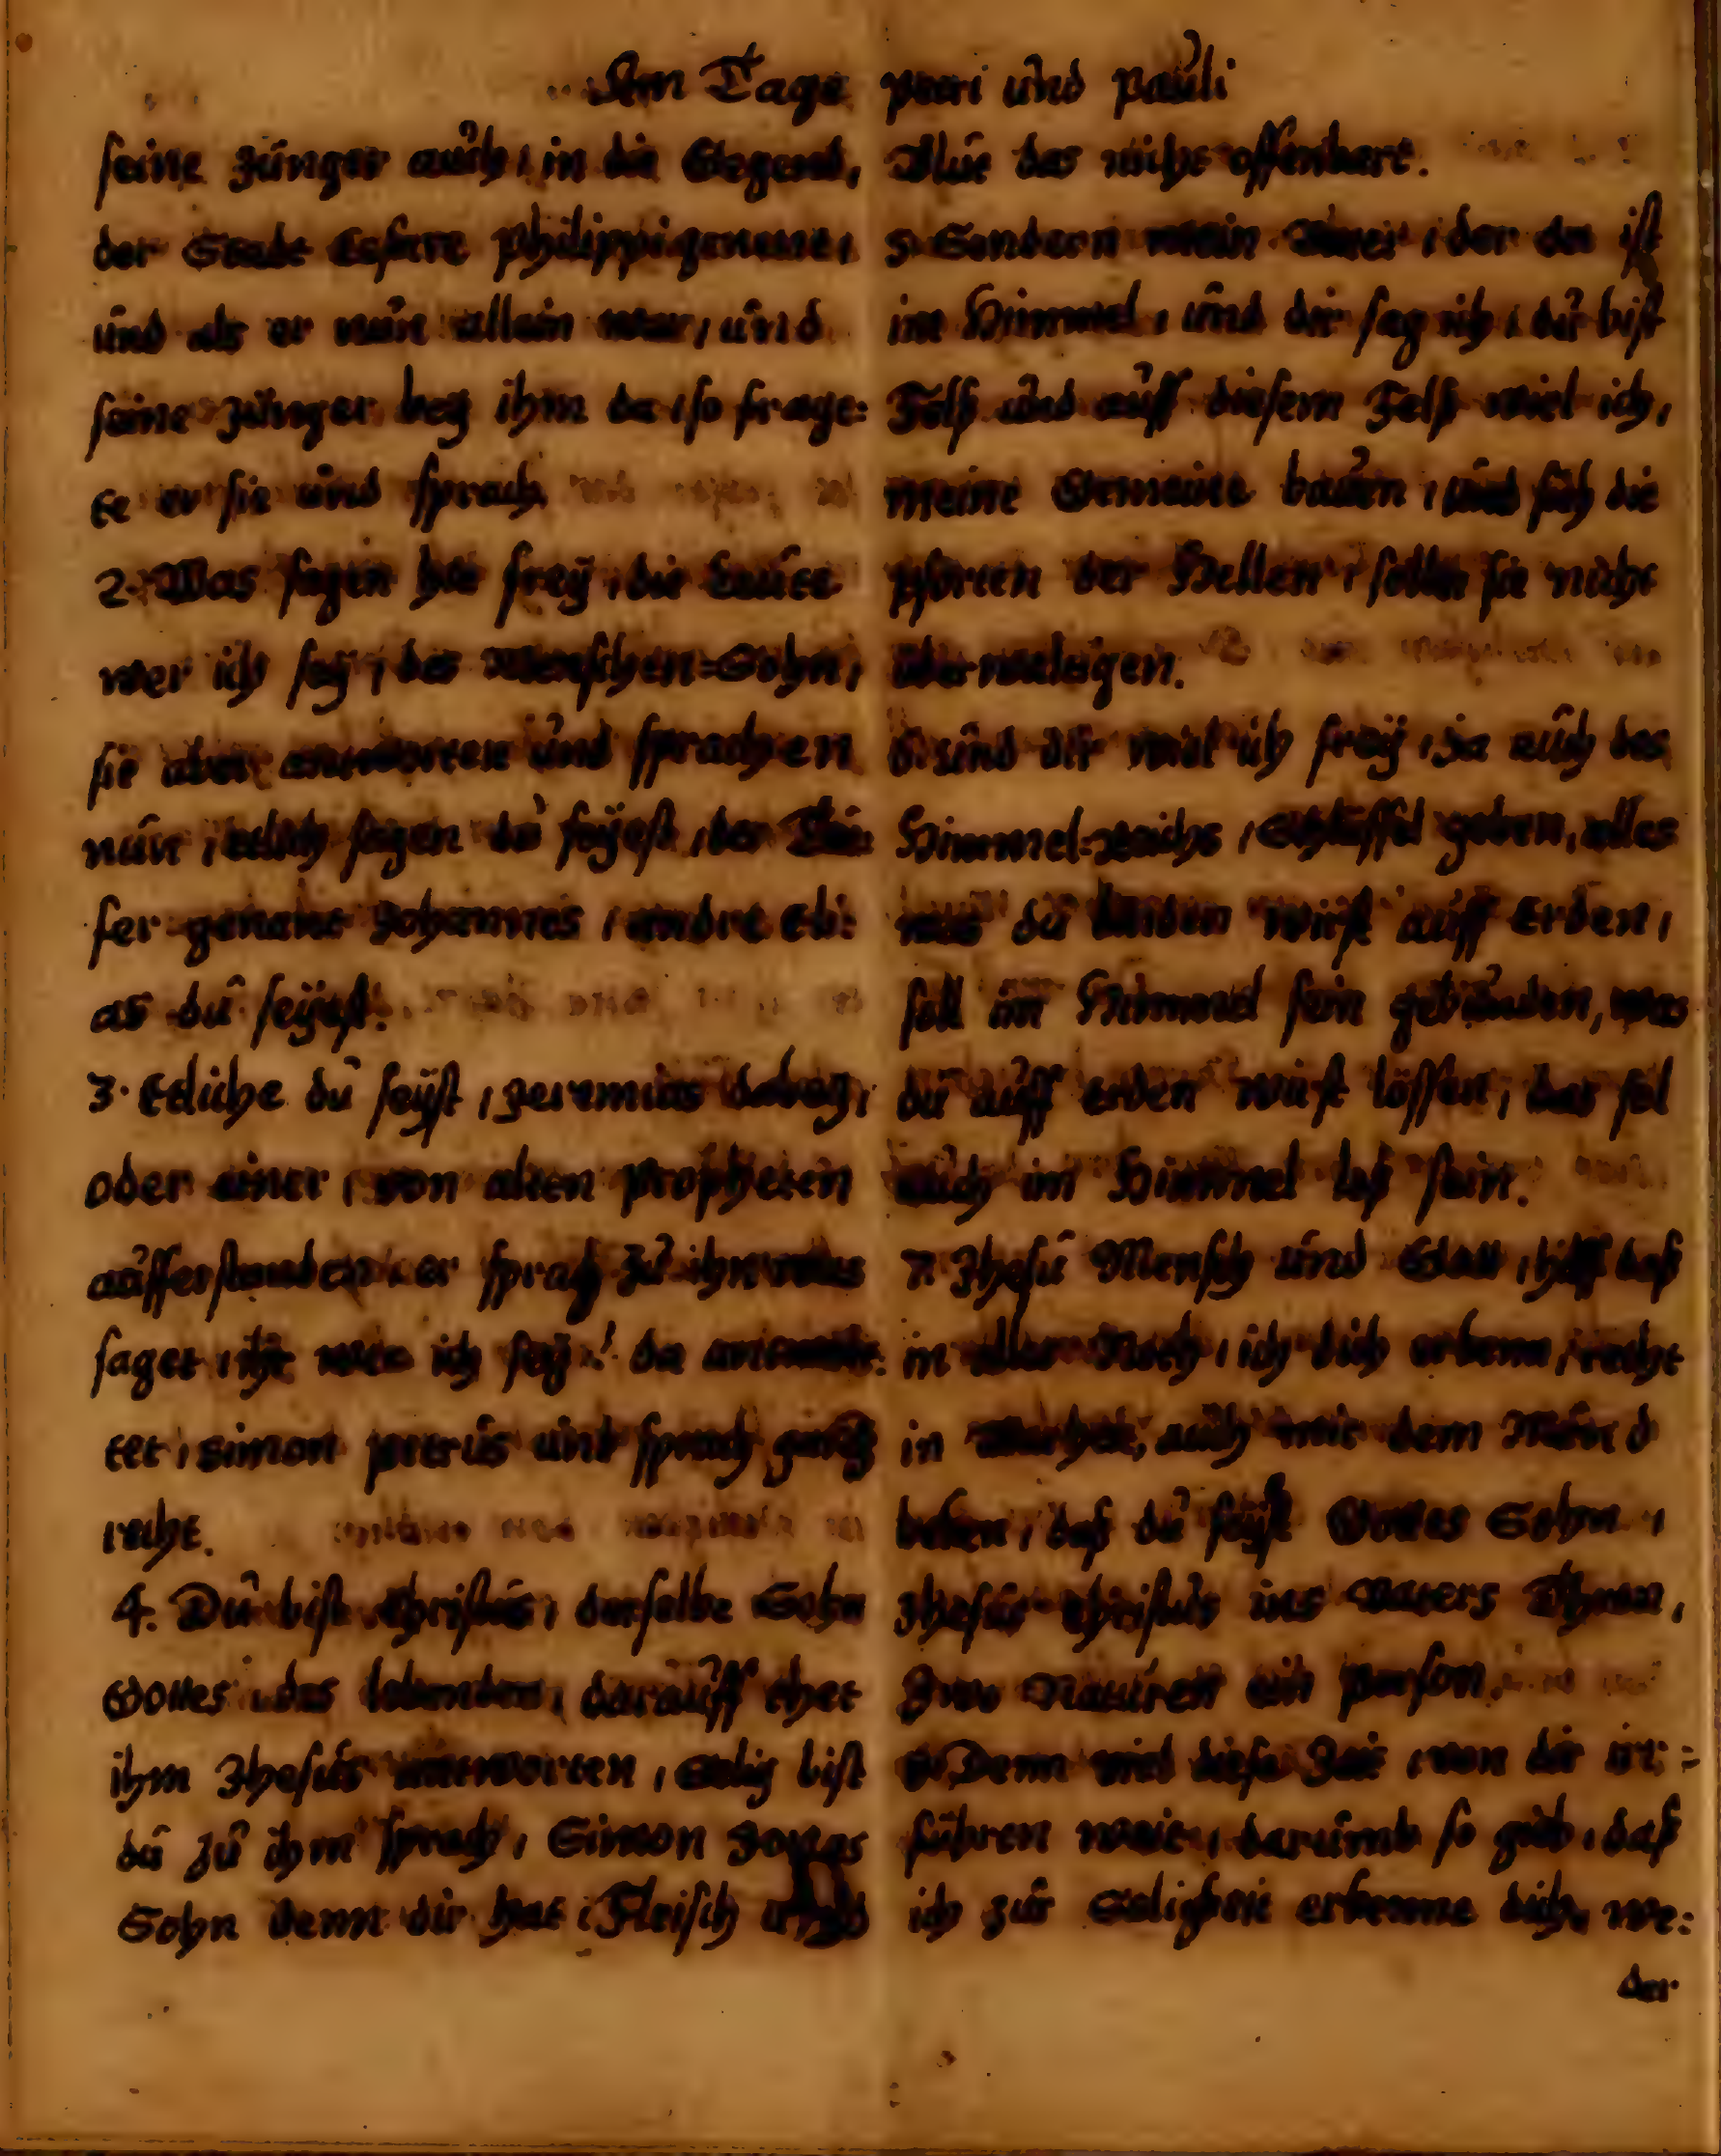 Am Tage petri und pauli
seine Jünger auch, in die Gegend,
der Stadt Cesaree philippi genant,
und als er nun allein war, und
seine Jünger bey ihm da, so frage=
te er sie und sprach.
2. Was sagen hie frey, die Leute
wer ich sey, des Menschen=Sohn,
sie aber antworten und sprachen
nun, etlich sagen du seyest, der Täu=
fer genant Johannes, andre Eli=
as du seyest.
3. Etliche du seyst, Jeremias dabey,
oder einer, von alten propheten
aufferstanden, er sprach zu ihn was
saget, ihr wer ich sey? da antwor=
tet, Simon petrus und sprach gantz
recht.
4. Du bist Christus, derselbe Sohn
Gottes, des lebenden, darauff thet
ihm Jhesus antworten, Selig bist
du zu ihm sprach, Simon Jonas
Sohn denn dir hat, Fleisch und
Blut das nicht offenbart.
5. Sondern mein Vater, der da ist
im Himmel, und dir sag ich, du bist
Felß und auff diesem Felß wiel ich,
meine Gemeine bauen, und sich die
pforten der Hellen, sollen sie nicht
überweltigen.
6. und dir wiel ich frey, Ja auch des
Himmel=reichs, Schlüssel geben, alles
was du binden wirst auff Erden,
soll im Himmel sein gebunden, was
du auff erden wirst lössen, das sol
auch im Himmel loß sein.
7. Jhesu Mensch und Gott, hilff daß
in aller Noth, ich dich erkenn, recht
in auch mit dem Mund
beken, daß du seyst Gottes Sohn,
Jhesus Christus ins Vaters Thron,
Zwo Naturen ein person.
8. Denn viel diese Zeit, von dir irr=
führen weit, darumb so gieb, daß
ich zur Seligkeit erkenne dich, we=
der